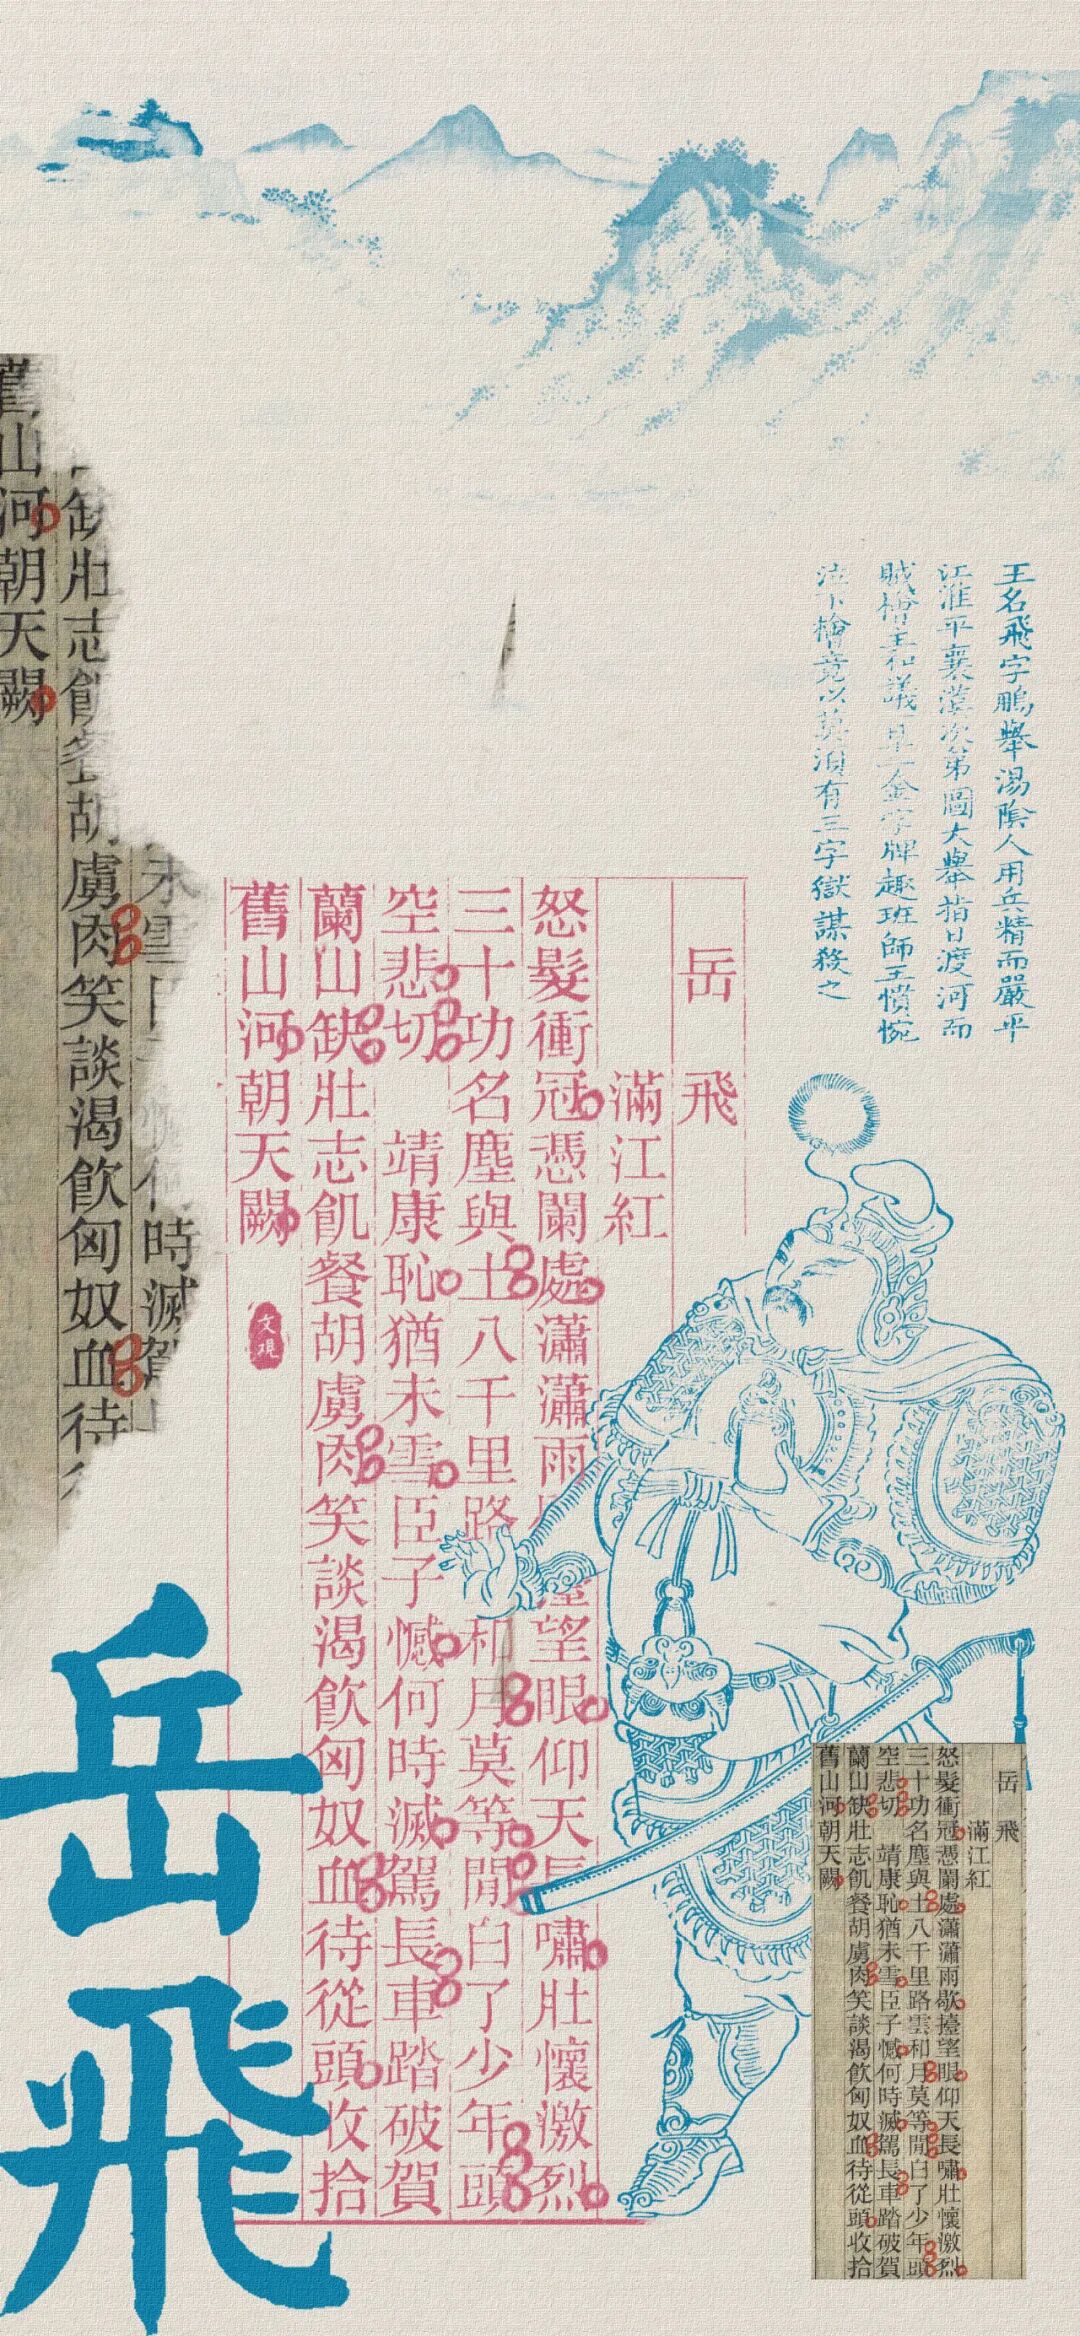 王名飛字鵬舉湯陰人用兵精而嚴平
江淮平襄漢次第圖大舉指日渡河而
賊檜主和議一旦金字牌趣班師王憤惋
泣下檜竟以莫須有三字獄謀殺之
岳飛
滿江紅
怒髮衝冠憑闌處瀟瀟雨
望眼仰天長嘯壯懷激烈
三十功名塵與土八千里路
和月莫等閒白了少年頭
空悲切 靖康恥猶未雪臣子憾何時滅駕長車踏破賀
蘭山缺壯志飢餐胡虜肉笑談渴飲匈奴血待從頭收拾
舊山河朝天闕
文观
未雪
時滅駕
缺壯志飢餐胡虜肉笑談渴飲匈奴血待
舊山河朝天闕
岳飛
岳飛
滿江紅
怒髮衝冠憑闌處瀟瀟雨歇擡望眼仰天長嘯壯懷激烈
三十功名塵與土八千里路雲和月莫等閒白了少年頭
空悲切 靖康恥猶未雪臣子憾何時滅駕長車踏破賀
蘭山缺壯志飢餐胡虜肉笑談渴飲匈奴血待從頭收拾
舊山河朝天闕